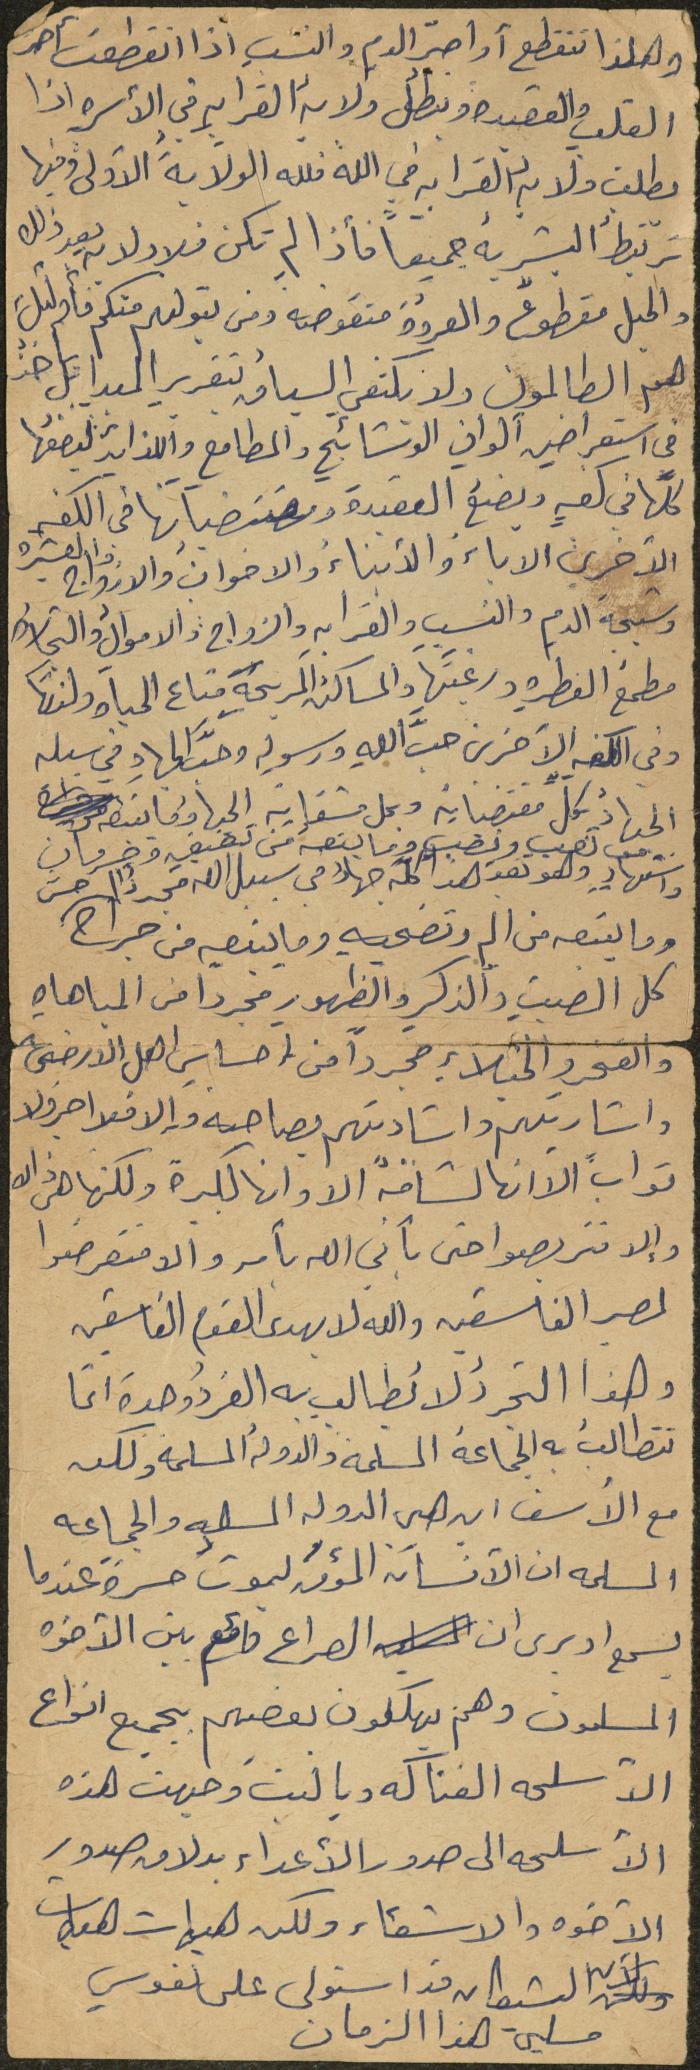 وهكذا تنقطع أواصر الدم والنسب اذا انقطعت آصرة
القلب والعقيده وتبطل ولاية القرابه في الأسره اذا
بطلت ولاية القرابه في الله فلله الولاية الأولى وفيها
ترتبط البشرية جميعاً فأذا لم تكن فلا ولاية بعد ذلك
والحبل مقطوعٌ والعروة منقوضه ومن يتولهم منكم فأولئك
هم الظالمون ولا يكتفي السياق بتقرير المبدأ بل يأخذ
في استعراض الوان الوشائج والمطامع واللذائذ ليضعها
كلها في كفه ويضع العقيدة ومقتضياتها في الكفه
الأخرى الاباء والأبناء والاخوان والازواج والعشيره
وشيجة الدم والنسب والقرابه والزواج والاموال والتجاره
مطمع الفطره ورغبتها والمساكن المريحة متاع الحياه ولذتها
وفي الكفه الآخرى حب الله ورسوله وحب الجهاد في سبيله
الجهاد بكل مقتضياته وبكل مشقاته الجهاد وما يتبعه
من تعب ونصب وما يتبعه من تضييق وحرمان
وما يتبعه من الم وتضحيه وما يتبعه من جراح
واستشهاد وهو بعد هذا كله جهاد في سبيل الله مجرد من
كل الصيت والذكر والظهور مجرداً من المباهاه
والفخر والخيلاء مجرداً من احساس اهل الارض به
واشارتهم واشادتهم بصاحبه وإلا فلا اجر ولا
ثواب الا انها لشاقةٌ الا وانها لكبيرة ولكنها هي ذاك
وإلا فتربصوا حتى يأتي الله بأمره والا فتعرضوا
لمصير الفاسقين والله لا يهدى القوم الفاسقين
وهذا التجرد لا يُطالب به الفرد وحدة انما
تتطالب به الجماعة المسلمة والدولة المسلمة ولكن
مع الأسف اين هى الدوله المسلمه والجماعه
المسلمه ان الآنسان المؤمن ليموت حسرة عندما
يسمع او يرى ان الصراع قائم بين الآخوه
المسلمون وهم يهلكون بعضهم بجميع انواع
الآسلحه الفتاكه ويا ليت وجهت هذه
الآسلحه الى صدور الأعداء بدلا من صدور
الآخوه والاشقاء ولكن هيهات هيهات
لآن الشيطان قد استولى على نفوس
مسلمي هذا الزمان